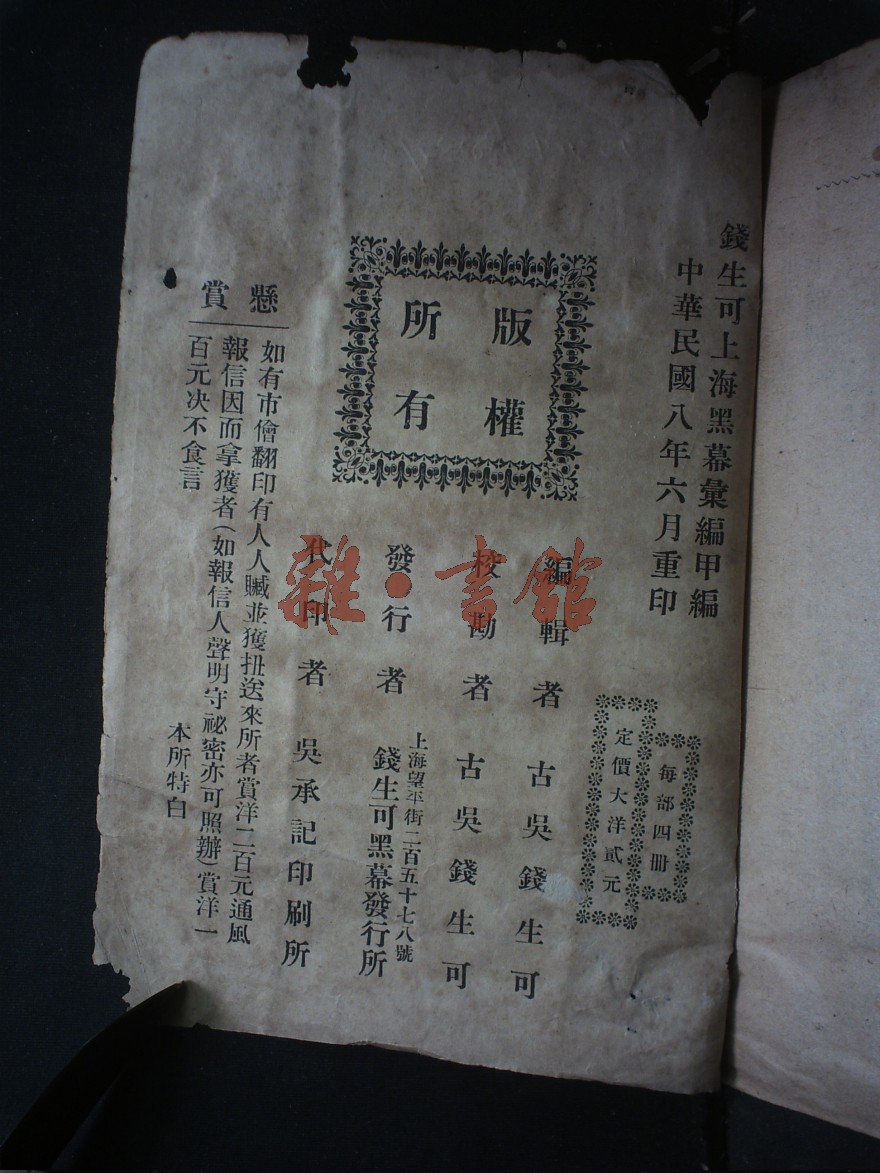 錢生可上海黑幕彙編甲編
中華民國八年六月重印
每部四冊
定價大洋貳元
版權
所有
編輯者 古吳錢生可
校勘者 古吳錢生可
上海望平街二百五十七八號
發行者 錢生可黑幕發行所
代印者 吳承記印刷所
懸賞
如有市儈翻印有人人贓並獲扭送來所者賞洋二百元通風
報信因而拿獲者(如報信人聲明守祕密亦可照辦)賞洋一
百元决不食言
本所特白
雜·書館